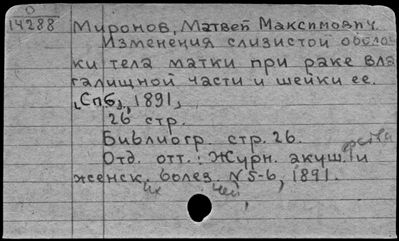 0
14288
Миронов, Матвей Максимович.
Изменения слизистой оболо
ки тела матки при раке вла
галищной части и шейки ее.
[Спб], 1891,
26 стр.
Библиогр. стр. 26.
Отд. отт.: Журн. акуш. и
женск. болез. №5-6, 1891.